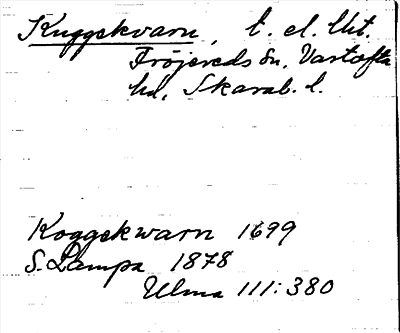 Kuggekvarn, t. el. lht.
Fröjereds sn, Vartofta
hd, Skarab. l.
Koggekwarn 1699
S. Lampa 1878
Ulma 111:380